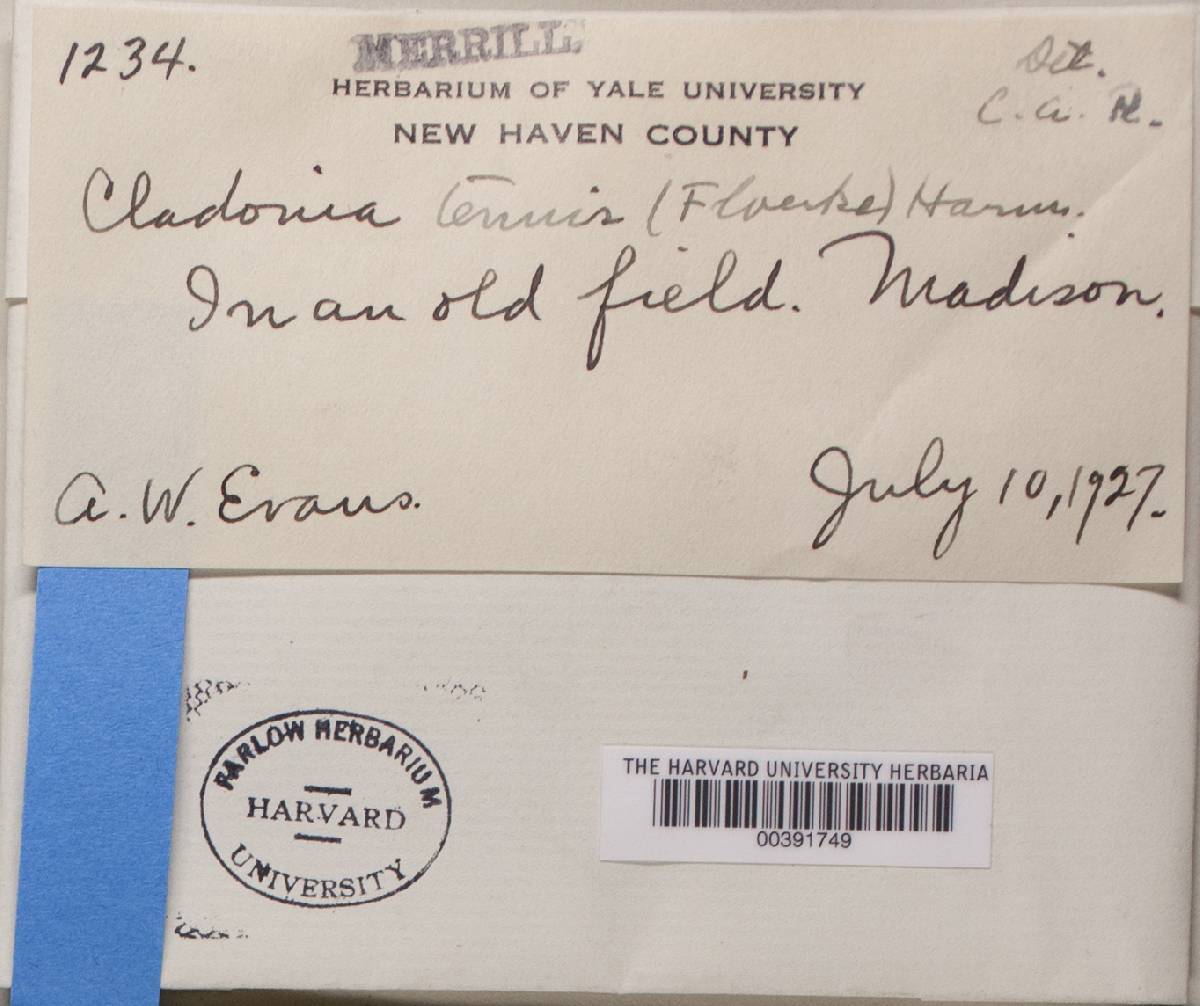 1234.
MERRILL.
Det.
C. A. R.
HERBARIUM OF YALE UNIVERSITY
NEW HAVEN COUNTY
Cladonia tenuis (Floerke) Harm.
In an old field. Madison.
A. W. Evans.
July 10, 1927.
FARLOW HERBARIUM
HARVARD
UNIVERSITY
THE HARVARD UNIVERSITY HERBARIA
00391749